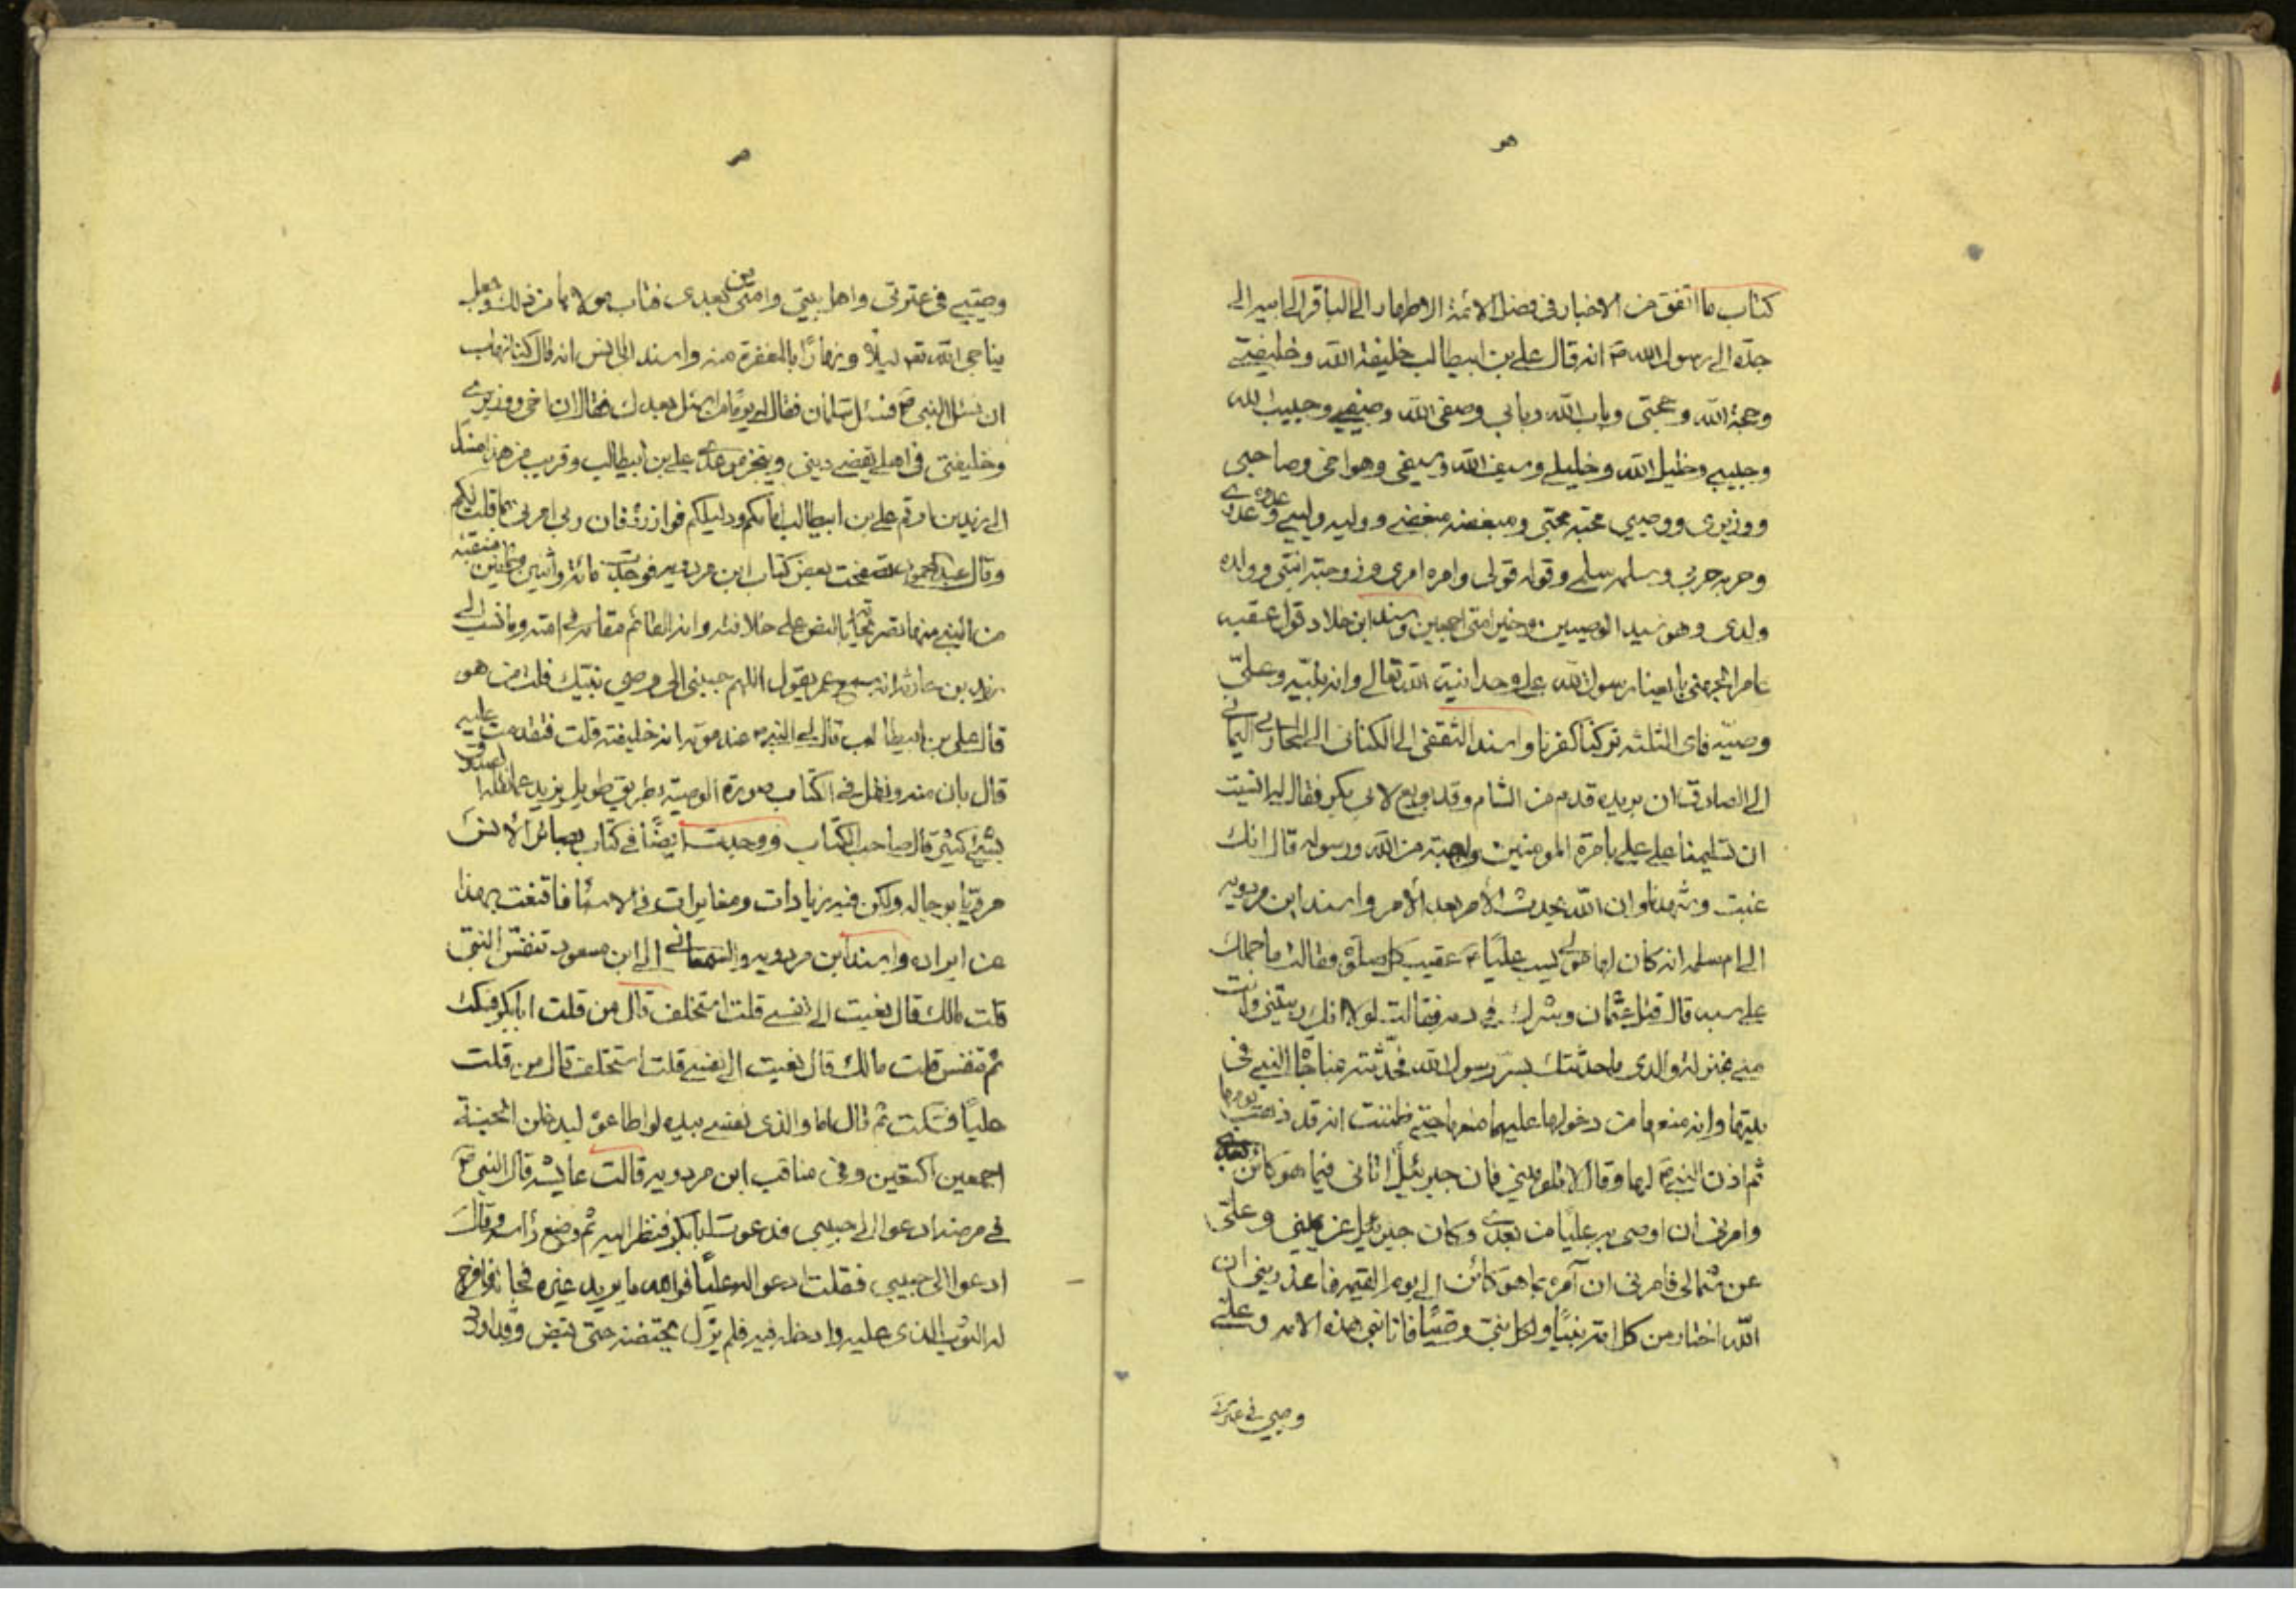 هو
كتاب ما اتفق من الاخبار فى فضل الائمة الاطهار الى الباقر الى ابيه الى
جده الى رسول الله ص انه قال على بن ابيطالب خليفة الله و خليفتى
و حجة الله و حجتى و باب الله و بابى و صفى الله و صفيى و حبيب الله
و حبيبى و خليل الله و خليلى و سيف الله و سيفى و هو اخى و صاحبى
و وزيرى و وصيى محبه محبى و مبغضه مبغضى و وليه وليى و عدوه عدوى
و حربه حربى و سلمه سلمى و قوله قولى و امره امرى و زوجته ابنتى و ولده
ولدى و هو سيد الوصيين و خير امتى اجمعين و اسند ابن خلاد قول عقبه
عامر الجهنى بايعنا رسول الله على وحدانية الله تعالى و انه نبيه و على
وصيه فاى الثلثه تركنا كفرنا و اسند الثقفى الى الكنانى الى المحاربى اليمانى
الى الصادق ان بريده قدم من الشام و قد بويع لابى بكر فقال له انسيت
ان تسليمنا على على بامرة المومنين واجبة من الله و رسوله قال انك
غبت و شهدنا و ان الله يحدث الامر بعد الامر و اسند ابن مردويه
الى ام سلمه انه كان لها مولى يسب عليا ع عقيب كل صلوة فقالت ما حملك
على سبه قال قتل عثمان و شرك فى دمه فقالت لولا انك ربيتنى و انت
منى بمنزلة والدى ما حدثتك بسر رسول الله فحدثته مناجاة النبى فى
بيتها و انه منعها من دخولها عليهما حتى ظننت انه قد ذهب يومها
ثم اذن النبى ص لها و قال لا تلومينى فان جبرئيل اتانى فيما هو كائن بعدى
و امرنى ان اوصى به عليا من بعدى و كان جبرئيل عن يمينى و على
عن شمالى فامرنى ان آمره بما هو كائن الى يوم القيمه فاعذرينى ان
الله اختار من كل امة نبيا و لكل نبى وصيا فانا نبى هذه الامه و على
وصيى فى عترتى
هو
وصيى فى عترتى و اهل بيتى و امتى من بعدى فتاب مولاها من ذلك و جعل
يناجى الله تعه ليلا و نهارا بالمغفرة منه و اسند الى انس انه قال كنا نهاب
ان نسئل النبى ص فسئل سلمان فقال له يوما من نسئل بعدك فقال ان اخى و وزيرى
و خليفتى فى اهلى يقضى دينى و ينجز موعدى على بن ابيطالب و قريب من هذا اسند
الى زيد بن ارقم على بن ابيطالب امامكم و دليلكم فوازروه فان ربى امرنى بما قلت لكم
و قال عبد المحمود تصفحت بعض كتاب ابن مردويه فوجدت مائة و اثنين و ثمانين منقبه
من النبى منها تصريحا بالنص على خلافته و انه القائم مقامه فى امته و ما نسب الى
زيد بن حارثه انه سمع عمر يقول اللهم حببنى الى وصى نبيك قلت من هو
قال على بن ابيطالب قال لى النبى ص عند موته انه خليفته قلت فتقدمت عليه
قال بان منه و نقل فى الكتاب صورة الوصيه بطريق طويل يزيد عما نقله الصدوق
بشئ كثير قال صاحب الكتاب و وجدت ايضا فى كتاب بصائر الانس
مرويا برجاله ولكن فيه زيادات و مغايرات فى الاسناد فاقنعت بهذا
عن ايراده و اسند ابن مردويه و السمعانى الى ابن مسعود تنفس النبى
قلت مالك قال نعيت الى نفسى قلت استخلف قال من قلت ابابكر فسكت
ثم تنفس قلت مالك قال نعيت الى نفسى قلت استخلف قال من قلت
عليا فسكت ثم قال اما والذى نفسى بيده لو اطاعوه ليدخلن الجنة
اجمعين اكتعين و فى مناقب ابن مردويه قالت عايشه قال النبى ص
فى مرضه ادعوا الى حبيبى فدعوت ابابكر فنظر اليه ثم وضع رأسه و قال
ادعوا الى حبيبى فقلت ادعوا له عليا فوالله ما يريد غيره فجاء فافرج
له الثوب الذى عليه و ادخله فيه فلم يزل يحتضنه حتى قبض